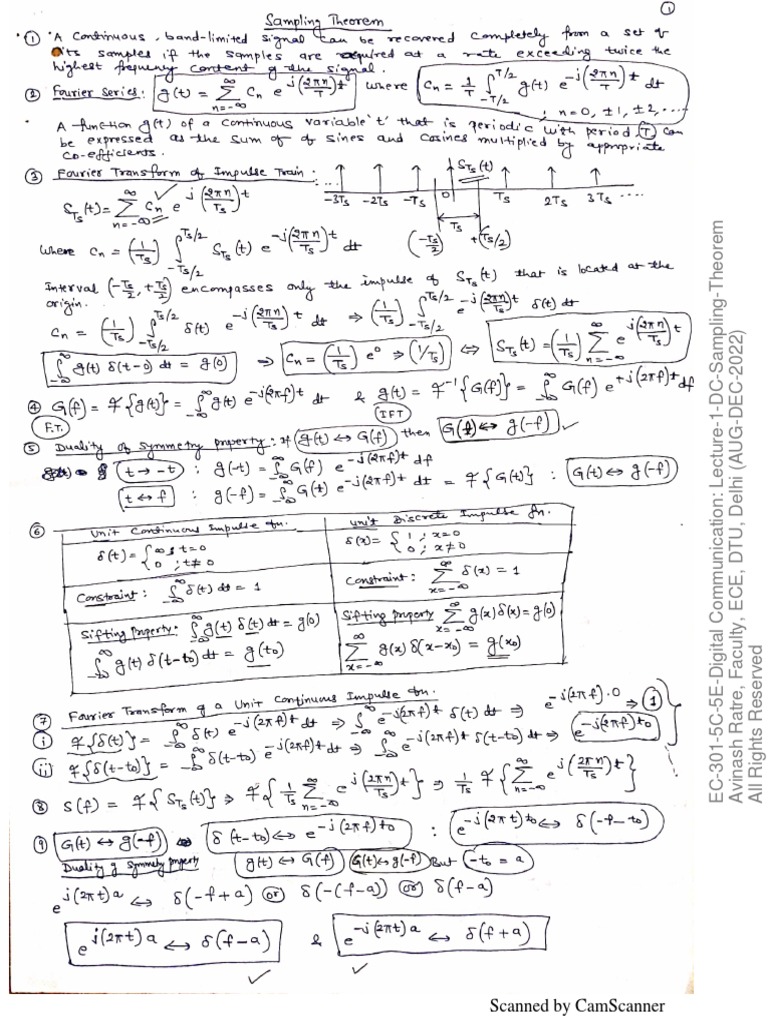 Sampling Theorem
①
① "A Continuous, band-limited signal can be recovered completely from a set of
its samples if the samples are acquired at a rate exceeding twice the
highest frequency content of the signal.
② Fourier Series: g(t) = ∑_{n=-∞}^{∞} Cn e^{j(2πn/T)t} where Cn = 1/T ∫_{-T/2}^{T/2} g(t) e^{-j(2πn/T)t} dt
; n=0, ±1, ±2, ....
A function g(t) of a continuous variable 't' that is periodic with period, (T) can
be expressed as the sum of of sines and cosines multiplied by appropriate
co-efficients.
③ Fourier Transform of Impulse Train: S_Ts(t)
.... -3Ts -2Ts -Ts 0 Ts 2Ts 3Ts ....
S_Ts(t) = ∑_{n=-∞}^{∞} Cn e^{j(2πn/Ts)t}
Ts
(-Ts/2) +(Ts/2)
where Cn = (1/Ts) ∫_{-Ts/2}^{Ts/2} S_Ts(t) e^{-j(2πn/Ts)t} dt
Interval (-Ts/2, +Ts/2) encompasses only the impulse of S_Ts(t) that is located at the
origin.
Cn = (1/Ts) ∫_{-Ts/2}^{Ts/2} δ(t) e^{-j(2πn/Ts)t} dt ⇒ (1/Ts) ∫_{-Ts/2}^{Ts/2} e^{-j(2πn/Ts)t} δ(t) dt
∫_{-∞}^{∞} g(t) δ(t-0) dt = g(0) ⇒ Cn = (1/Ts) e⁰ ⇒ (1/Ts) ⇔ S_Ts(t) = (1/Ts) ∑_{n=-∞}^{∞} e^{j(2πn/Ts)t}
④ G(f) = F{g(t)} = ∫_{-∞}^{∞} g(t) e^{-j(2πf)t} dt & g(t) = F⁻¹{G(f)} = ∫_{-∞}^{∞} G(f) e^{+j(2πf)t} df
F.T. (IFT)
⑤ Duality of symmetry property: if g(t) ↔ G(f) then G(t) ↔ g(-f) ✓
t → -t : g(-t) = ∫_{-∞}^{∞} G(f) e^{-j(2πf)t} df
t ↔ f : g(-f) = ∫_{-∞}^{∞} G(t) e^{-j(2πf)t} dt = F{G(t)} : G(t) ↔ g(-f)
⑥ Unit Continuous Impulse fn. Unit Discrete Impulse fn.
δ(t) = { ∞ ; t=0 δ(x) = { 1 ; x=0
0 ; t≠0 0 ; x≠0
Constraint: ∫_{-∞}^{∞} δ(t) dt = 1 Constraint: ∑_{x=-∞}^{∞} δ(x) = 1
Sifting Property: ∫_{-∞}^{∞} g(t) δ(t) dt = g(0) Sifting property ∑_{x=-∞}^{∞} g(x) δ(x) = g(0)
∫_{-∞}^{∞} g(t) δ(t-t0) dt = g(t0) ∑_{x=-∞}^{∞} g(x) δ(x-x0) = g(x0)
⑦ Fourier Transform of a Unit Continuous Impulse fn.
(i) F{δ(t)} = ∫_{-∞}^{∞} δ(t) e^{-j(2πf)t} dt ⇒ ∫_{-∞}^{∞} e^{-j(2πf)t} δ(t) dt ⇒ e^{-j(2πf)·0} ⇒ 1
(ii) F{δ(t-t0)} = ∫_{-∞}^{∞} δ(t-t0) e^{-j(2πf)t} dt ⇒ ∫_{-∞}^{∞} e^{-j(2πf)t} δ(t-t0) dt ⇒ e^{-j(2πf)t0}
⑧ S(f) = F{S_Ts(t)} ⇒ F{1/Ts ∑_{n=-∞}^{∞} e^{j(2πn/Ts)t}} ⇒ 1/Ts F{∑_{n=-∞}^{∞} e^{j(2πn/Ts)t}}
⑨ G(t) ↔ g(-f) ⇒ δ(t-t0) ↔ e^{-j(2πf)t0} : e^{-j(2πt)t0} ↔ δ(-f-t0)
Duality of Symmetry property g(t) ↔ G(f) G(t) ↔ g(-f) But -t0 = a
e^{j(2πt)a} ↔ δ(-f+a) or δ(-(f-a)) or δ(f-a)
e^{j(2πt)a} ↔ δ(f-a) & e^{-j(2πt)a} ↔ δ(f+a)
✓ ✓
EC-301-5C-5E-Digital Communication: Lecture-1-DC-Sampling-Theorem
Avinash Ratre, Faculty, ECE, DTU, Delhi (AUG-DEC-2022)
All Rights Reserved
Scanned by CamScanner